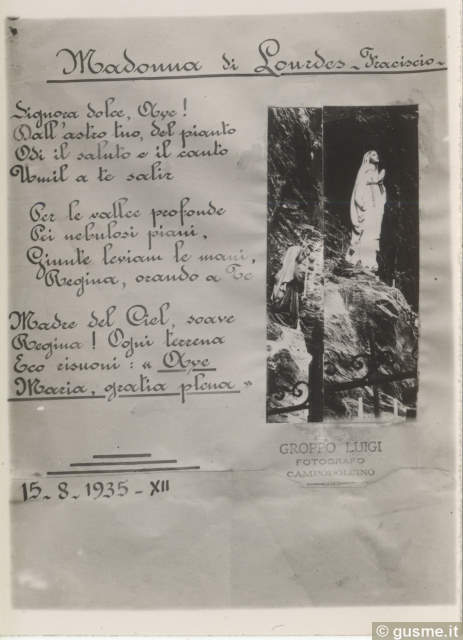 Madonna di Lourdes - Fraciscio -
Signora dolce, Ave!
Dall'astro tuo, del pianto
Odi il saluto e il canto
Umil a te salir
Per le vallee profonde
Pei nebulosi piani,
Giunte leviam le mani,
Regina, orando a Te
Madre del Ciel, soave
Regina! Ogni terrena
Eco risuoni: « Ave
Maria, gratia plena »
GROPPO LUIGI
FOTOGRAFO
CAMPODOLCINO
15-8-1935-XII
© gusme.it